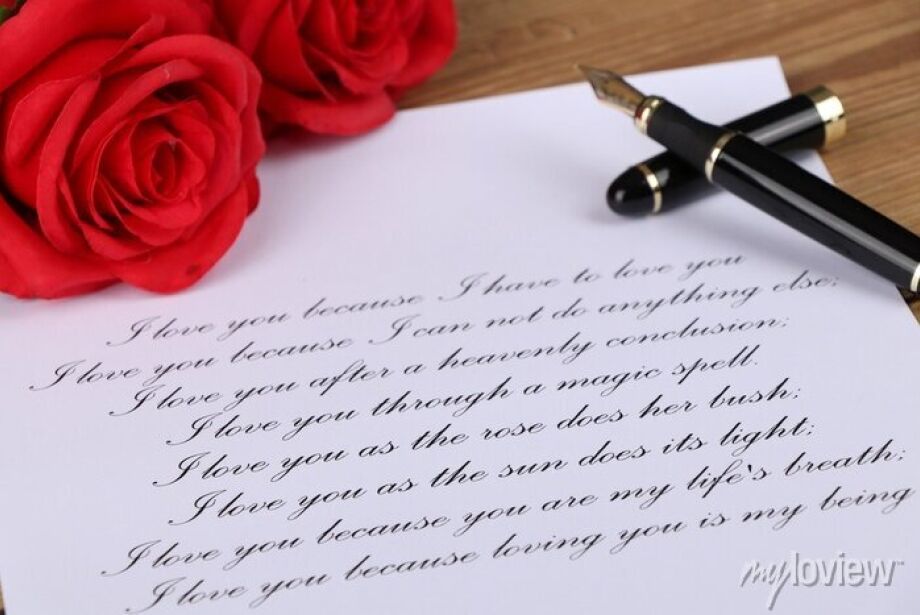 I love you because I have to love you
I love you because I can not do anything else;
I love you after a heavenly conclusion;
I love you through a magic spell.
I love you as the rose does her bush;
I love you as the sun does its light;
I love you because you are my life`s breath;
I love you because loving you is my being
myloview